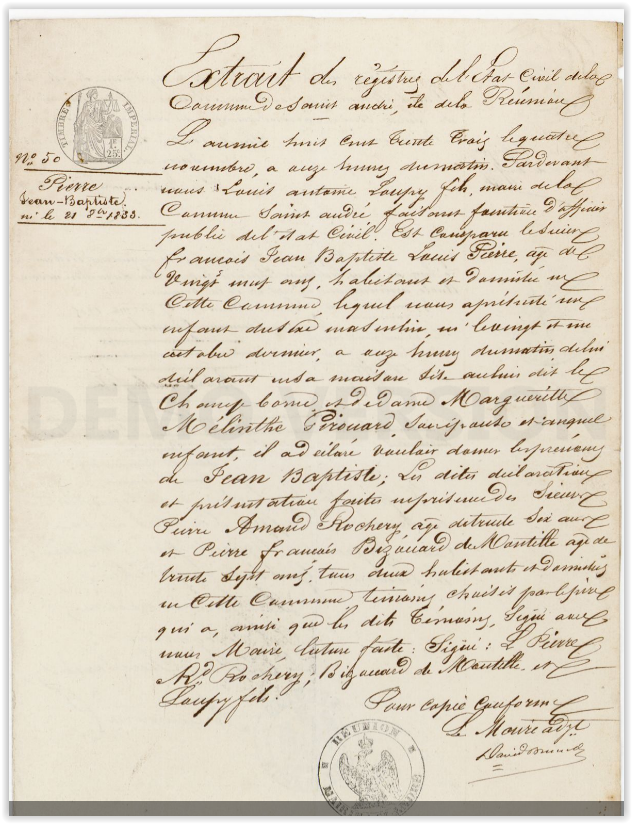 Extrait des régistres de l'Etat Civil de la
Commune de Saint andré, île de la Réunion
TIMBRE IMPERIAL
1F
25c
No 50
Pierre
Jean-Baptiste
né le 21 8bre 1833.
L'année huit cent trente trois le quatre
novembre, a onze heures du matin. Pardevant
nous Louis antoine Loupy fils, maire de la
Commune Saint andré faisant fonction d'officier
public de l'état Civil. Est comparu le sieur
francois Jean Baptiste Louis Pierre, age de
Vingt neuf ans, habitant et domicilié en
Cette Commune, lequel nous a présenté un
enfant du sexe masculin, né le vingt et un
octobre dernier, a onze heures du matin de lui
déclarant en sa maison sise au lieu dit le
Champ borne, et de dame Marguerite
Mélinthe Pérouard son épouse et auquel
enfant, il a déclaré vouloir donner les prénoms
de Jean Baptiste; Les dites déclaration
et présentation faites en présence des Sieurs
Pierre Amand Rochery age de trente six ans
et Pierre francois Bizouard de Montille age de
trente sept ans, tous deux habitants et domiciliés
en Cette Commune, témoins choisis par le père
qui a, ainsi que les dits Témoins, Signé avec
nous Maire, lecture faite: Signé: L. Pierre
Rd Rochery; Bizouard de Montille et
Loupy fils.
Pour copie conforme
Le Maire adjt
REUNION